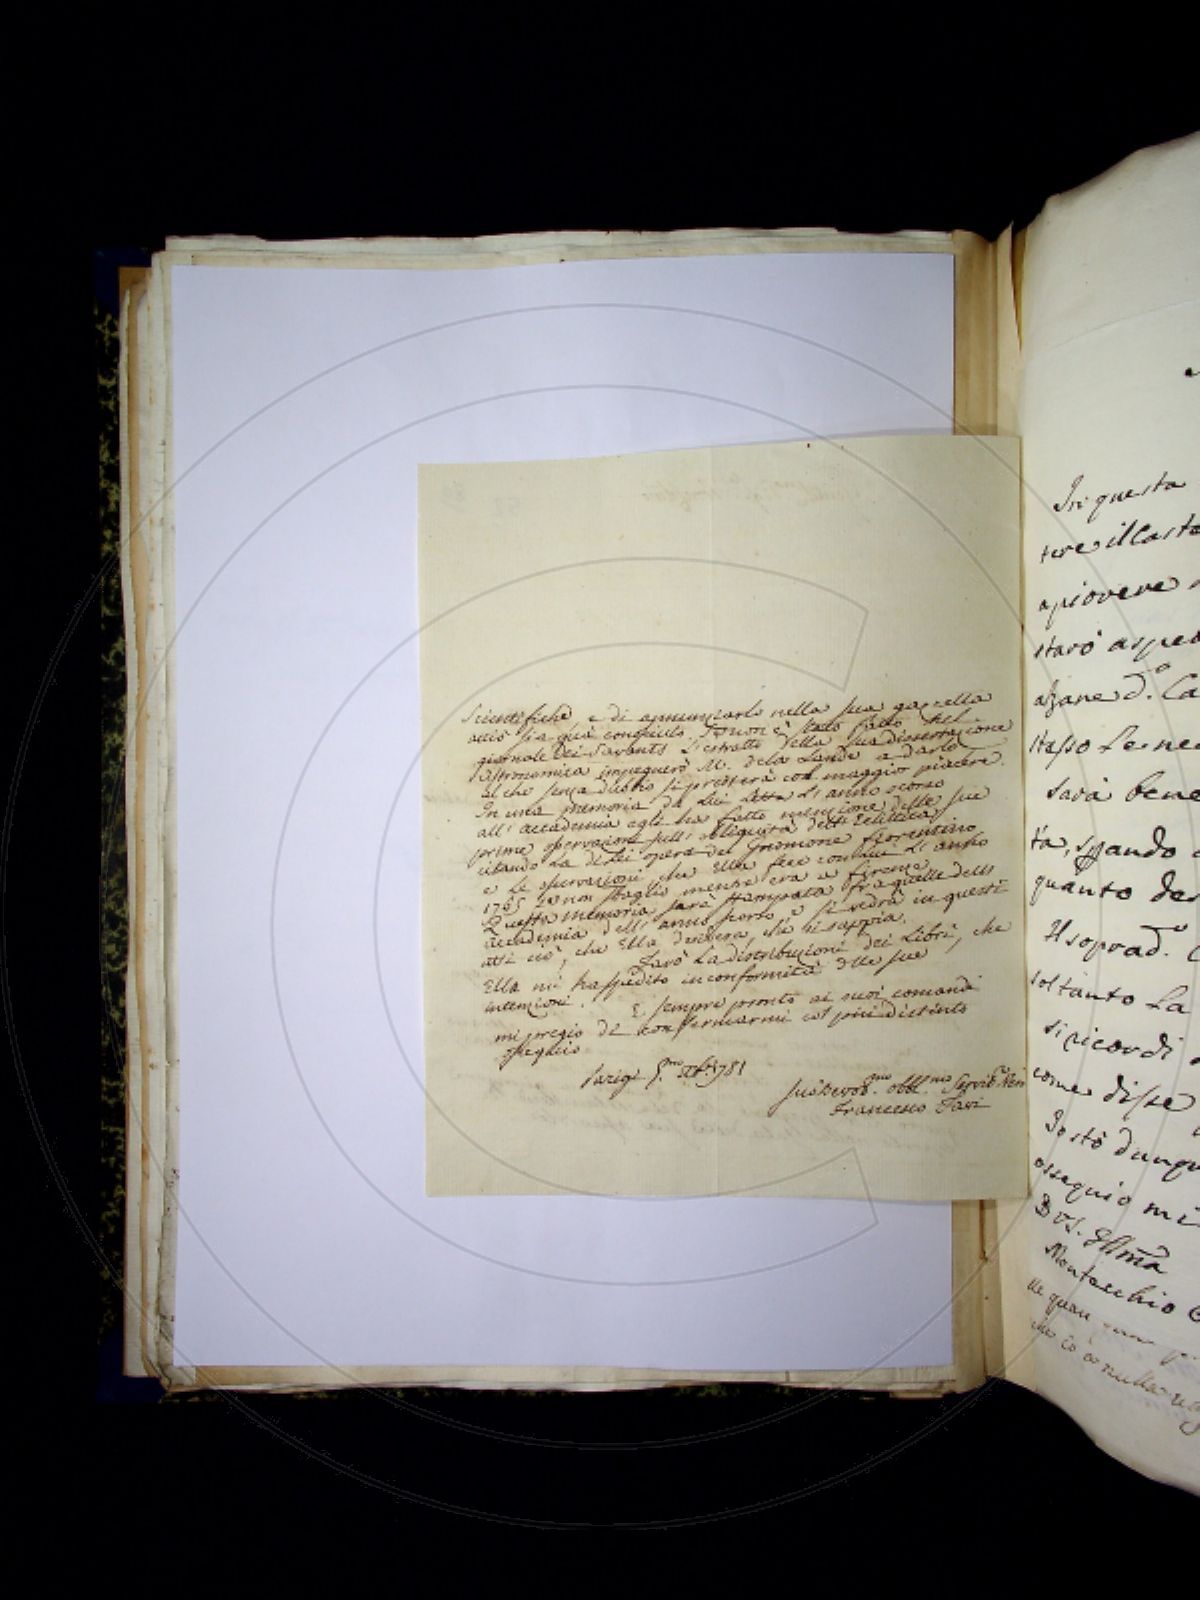 Scientifiche, e di annunziarlo nella sua gazzetta
acciò sia quà conosciuto. Se non è stato fatto nel
giornale dei Savants L'estratto della sua dissertazione
Astronomica impegnerò M. de la Lande a darlo
il che senza dubbio si presterà con maggio piacere.
In una memoria da Lui Letta L'anno scorso
all' accademia egli ha fatto menzione delle sue
prime osservazioni sull' obliquità dell' Eclittica
citando La di Lei opera del Gnomone fiorentino
e Le osservazioni che Ella fece con Lui L'anno
1765 se non sbaglio mentre era a firenze
Questa memoria sarà stampata fra quelle dell'
accademia dell' anno scorso, e si vedrà in questi
atti ciò, che Ella desidera, che si sappia.
Farò La distribuzione dei Libri, che
Ella mi ha spedito in conformità delle sue
intenzioni. E sempre pronto ai suoi comandi
mi pregio di confermarmi col più distinto
ossequio
Parigi 1781
Suo Devot.mo obbl.mo Servit.e
Francesco Favi
In questa
tere il Casto
a piovere
starò aspe
alzane d.o Ca
stasso Le ne
sarà bene
tà, sperando
quanto de
Il soprad.o
soltanto La
si ricordi
come disse
Io stò dunqu
ossequio mi
Di VS. Ill̃ma
Montecchio